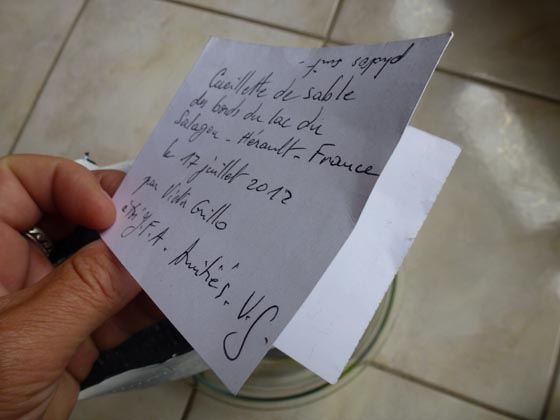 Cueillette de sable
des bords du lac du
Salagou - Hérault - France
le 17 juillet 2012
par Victor Grillo
F.A. Amitiés. V.G.
photos suit.